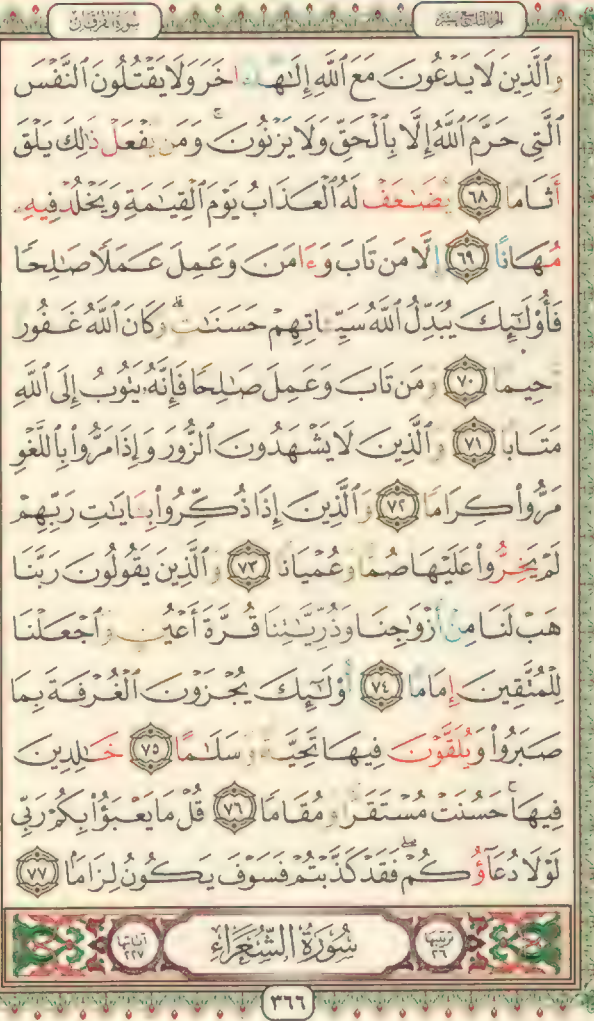 سُورَةُ الفُرْقَانِ
الجزء التاسع عشر
وَٱلَّذِينَ لَا يَدۡعُونَ مَعَ ٱللَّهِ إِلَٰهًا ءَاخَرَ وَلَا يَقۡتُلُونَ ٱلنَّفۡسَ
ٱلَّتِي حَرَّمَ ٱللَّهُ إِلَّا بِٱلۡحَقِّ وَلَا يَزۡنُونَۚ وَمَن يَفۡعَلۡ ذَٰلِكَ يَلۡقَ
أَثَامٗا ٦٨ يُضَٰعَفۡ لَهُ ٱلۡعَذَابُ يَوۡمَ ٱلۡقِيَٰمَةِ وَيَخۡلُدۡ فِيهِۦ
مُهَانًا ٦٩ إِلَّا مَن تَابَ وَءَامَنَ وَعَمِلَ عَمَلٗا صَٰلِحٗا
فَأُوْلَٰٓئِكَ يُبَدِّلُ ٱللَّهُ سَيِّـَٔاتِهِمۡ حَسَنَٰتٖۗ وَكَانَ ٱللَّهُ غَفُورٗا
رَّحِيمٗا ٧٠ وَمَن تَابَ وَعَمِلَ صَٰلِحٗا فَإِنَّهُۥ يَتُوبُ إِلَى ٱللَّهِ
مَتَابٗا ٧١ وَٱلَّذِينَ لَا يَشۡهَدُونَ ٱلزُّورَ وَإِذَا مَرُّواْ بِٱللَّغۡوِ
مَرُّواْ كِرَامٗا ٧٢ وَٱلَّذِينَ إِذَا ذُكِّرُواْ بِـَٔايَٰتِ رَبِّهِمۡ
لَمۡ يَخِرُّواْ عَلَيۡهَا صُمّٗا وَعُمۡيَانٗا ٧٣ وَٱلَّذِينَ يَقُولُونَ رَبَّنَا
هَبۡ لَنَا مِنۡ أَزۡوَٰجِنَا وَذُرِّيَّٰتِنَا قُرَّةَ أَعۡيُنٖ وَٱجۡعَلۡنَا
لِلۡمُتَّقِينَ إِمَامًا ٧٤ أُوْلَٰٓئِكَ يُجۡزَوۡنَ ٱلۡغُرۡفَةَ بِمَا
صَبَرُواْ وَيُلَقَّوۡنَ فِيهَا تَحِيَّةٗ وَسَلَٰمًا ٧٥ خَٰلِدِينَ
فِيهَاۚ حَسُنَتۡ مُسۡتَقَرّٗا وَمُقَامٗا ٧٦ قُلۡ مَا يَعۡبَؤُاْ بِكُمۡ رَبِّي
لَوۡلَا دُعَآؤُكُمۡۖ فَقَدۡ كَذَّبۡتُمۡ فَسَوۡفَ يَكُونُ لِزَامَۢا ٧٧
ترتيبها ٢٦
سُورَةُ الشُّعَرَاءِ
آياتها ٢٢٧
٣٦٦